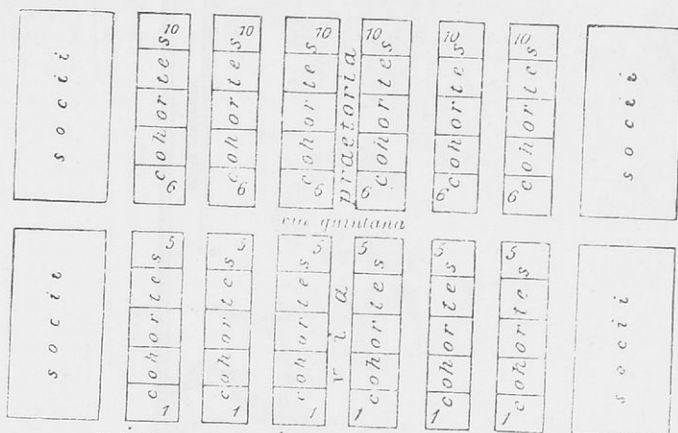 socii
10 cohortes 6
10 cohortes 6
10 cohortes 6
praetoria
10 cohortes 6
10 cohortes 6
10 cohortes 6
socii
via quintana
socii
5 cohortes 1
5 cohortes 1
5 cohortes 1
via
5 cohortes 1
5 cohortes 1
5 cohortes 1
socii